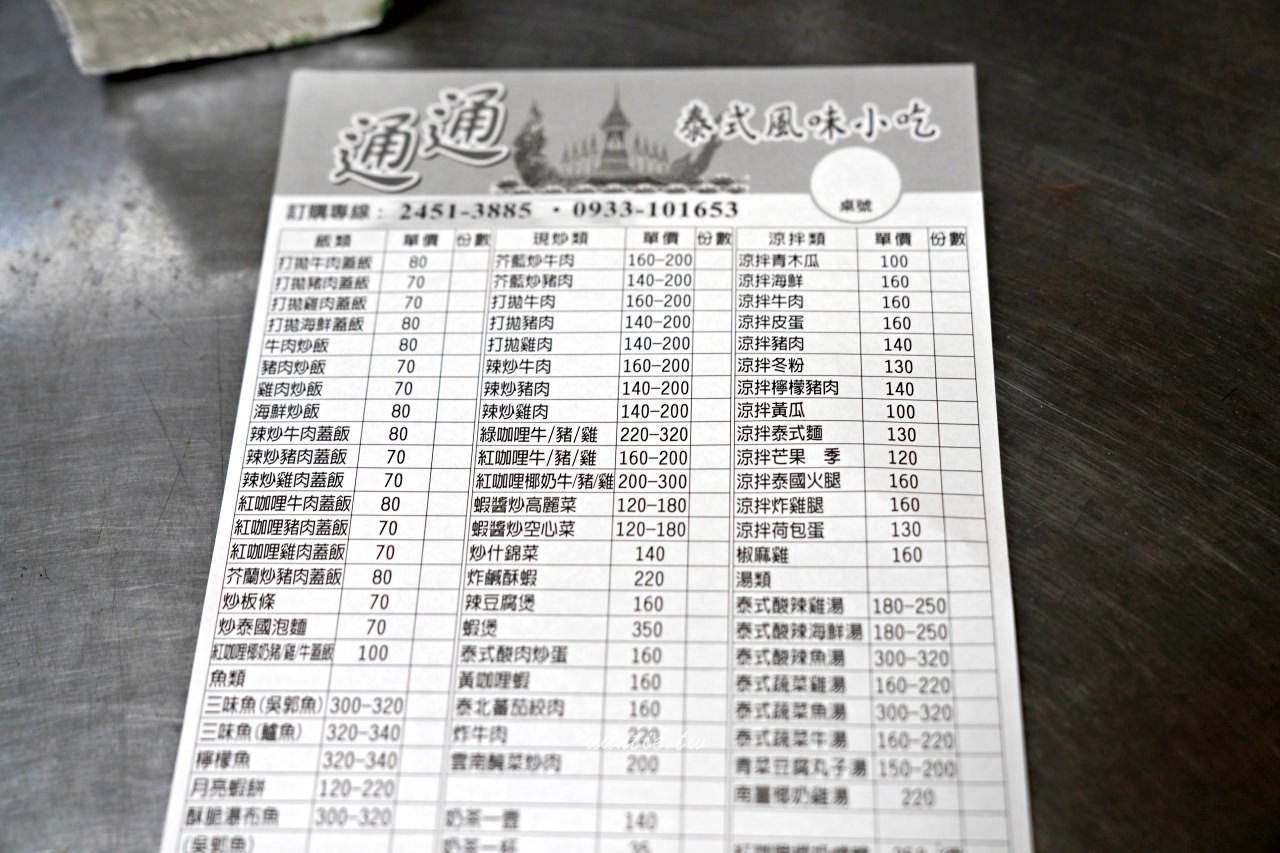 通通 泰式風味小吃
桌號
訂購專線：2451-3885 ・0933-101653
飯類 單價 份數 現炒類 單價 份數 涼拌類 單價 份數
打拋牛肉蓋飯 80 芥藍炒牛肉 160-200 涼拌青木瓜 100
打拋豬肉蓋飯 70 芥藍炒豬肉 140-200 涼拌海鮮 160
打拋雞肉蓋飯 70 打拋牛肉 160-200 涼拌牛肉 160
打拋海鮮蓋飯 80 打拋豬肉 140-200 涼拌皮蛋 160
牛肉炒飯 80 打拋雞肉 140-200 涼拌豬肉 140
豬肉炒飯 70 辣炒牛肉 160-200 涼拌冬粉 130
雞肉炒飯 70 辣炒豬肉 140-200 涼拌檸檬豬肉 140
海鮮炒飯 80 辣炒雞肉 140-200 涼拌黃瓜 100
辣炒牛肉蓋飯 80 綠咖哩牛/豬/雞 220-320 涼拌泰式麵 130
辣炒豬肉蓋飯 70 紅咖哩牛/豬/雞 160-200 涼拌芒果 季 120
辣炒雞肉蓋飯 70 紅咖哩椰奶牛/豬/雞 200-300 涼拌泰國火腿 160
紅咖哩牛肉蓋飯 80 蝦醬炒高麗菜 120-180 涼拌炸雞腿 160
紅咖哩豬肉蓋飯 70 蝦醬炒空心菜 120-180 涼拌荷包蛋 130
紅咖哩雞肉蓋飯 70 炒什錦菜 140 椒麻雞 160
芥蘭炒豬肉蓋飯 80 炸鹹酥蝦 220 湯類
炒板條 70 辣豆腐煲 160 泰式酸辣雞湯 180-250
炒泰國泡麵 70 蝦煲 350 泰式酸辣海鮮湯 180-250
紅咖哩椰奶豬/雞/牛蓋飯 100 泰式酸肉炒蛋 160 泰式酸辣魚湯 300-320
魚類 黃咖哩蝦 160 泰式蔬菜雞湯 160-220
三味魚(吳郭魚) 300-320 泰北蕃茄絞肉 160 泰式蔬菜魚湯 300-320
三味魚(鱸魚) 320-340 炸牛肉 220 泰式蔬菜牛湯 160-220
檸檬魚 320-340 雲南醃菜炒肉 200 青菜豆腐丸子湯 150-200
月亮蝦餅 120-220 南薑椰奶雞湯 220
酥脆瀑布魚 300-320 奶茶一壺 140
(吳郭魚) 奶茶一杯 35